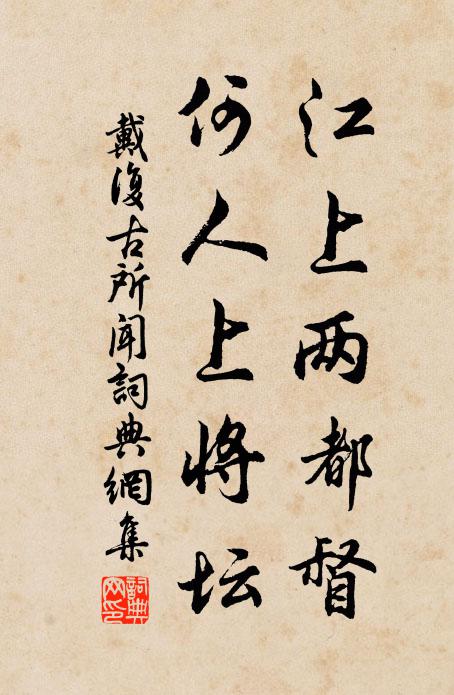 江上两都督
何人上将坛
戴復古所闻詞典網集
詞典網印